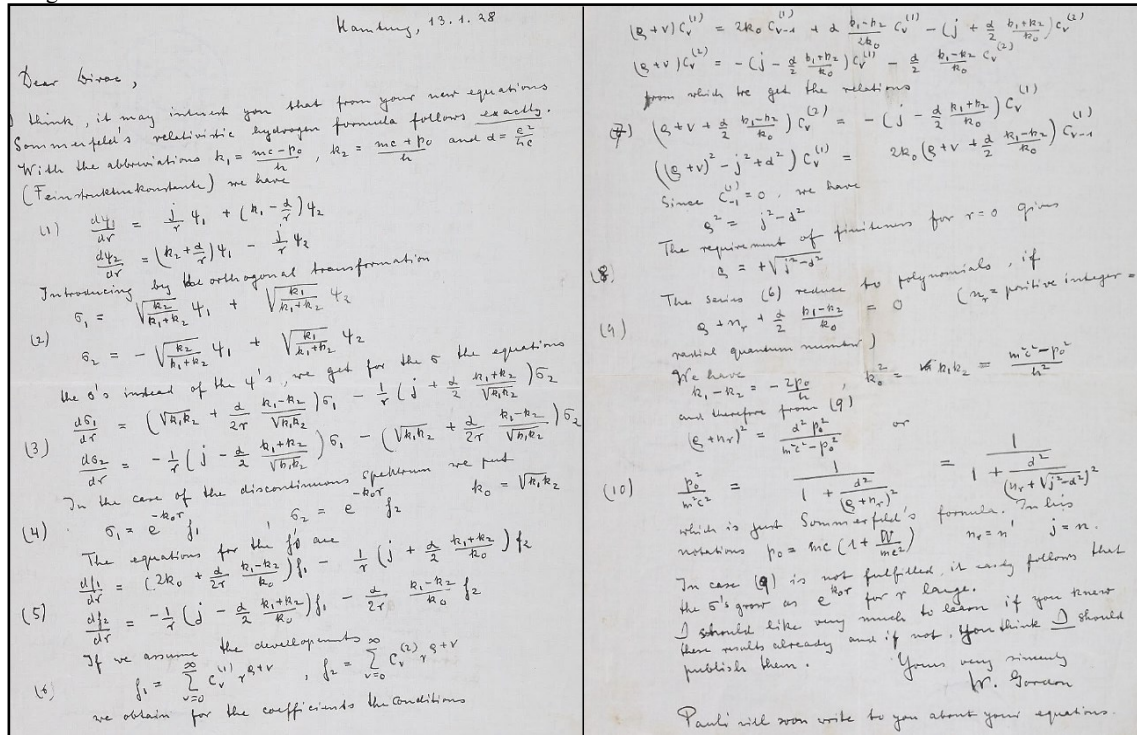 Hamburg, 13.1.28
Dear Dirac,
I think, it may interest you that from your new equations
Sommerfeld's relativistic hydrogen formula follows exactly.
With the abbreviations k₁ = (mc − p₀)/h , k₂ = (mc + p₀)/h and α = e²/hc
(Feinstrukturkonstante) we have
(1) dψ₁/dr = j/r ψ₁ + (k₁ − α/r) ψ₂
dψ₂/dr = (k₂ + α/r) ψ₁ − j/r ψ₂
Introducing by the orthogonal transformation
σ₁ = √(k₂/(k₁+k₂)) ψ₁ + √(k₁/(k₁+k₂)) ψ₂
(2)
σ₂ = − √(k₂/(k₁+k₂)) ψ₁ + √(k₁/(k₁+k₂)) ψ₂
the σ's instead of the ψ's, we get for the σ the equations
dσ₁/dr = (√(k₁k₂) + α/2r (k₁−k₂)/√(k₁k₂)) σ₁ − 1/r (j + α/2 (k₁+k₂)/√(k₁k₂)) σ₂
(3)
dσ₂/dr = − 1/r (j − α/2 (k₁+k₂)/√(k₁k₂)) σ₁ − (√(k₁k₂) + α/2r (k₁−k₂)/√(k₁k₂)) σ₂
In the case of the discontinuous spektrum we put
(4) σ₁ = e^(−k₀r) f₁ , σ₂ = e^(−k₀r) f₂ k₀ = √(k₁k₂)
The equations for the f's are
df₁/dr = (2k₀ + α/2r (k₁−k₂)/k₀) f₁ − 1/r (j + α/2 (k₁+k₂)/k₀) f₂
(5)
df₂/dr = − 1/r (j − α/2 (k₁+k₂)/k₀) f₁ − α/2r (k₁−k₂)/k₀ f₂
If we assume the developments
(6) f₁ = ∑_(ν=0)^∞ C_ν^(1) r^(ϱ+ν) , f₂ = ∑_(ν=0)^∞ C_ν^(2) r^(ϱ+ν)
we obtain for the coefficients the conditions
(ϱ+ν) C_ν^(1) = 2k₀ C_(ν−1)^(1) + α (k₁−k₂)/2k₀ C_ν^(1) − (j + α/2 (k₁+k₂)/k₀) C_ν^(2)
(ϱ+ν) C_ν^(2) = − (j − α/2 (k₁+k₂)/k₀) C_ν^(1) − α/2 (k₁−k₂)/k₀ C_ν^(2)
from which we get the relations
(7) (ϱ+ν + α/2 (k₁−k₂)/k₀) C_ν^(2) = − (j − α/2 (k₁+k₂)/k₀) C_ν^(1)
((ϱ+ν)² − j² + α²) C_ν^(1) = 2k₀ (ϱ+ν + α/2 (k₁−k₂)/k₀) C_(ν−1)^(1)
Since C_(−1)^(1) = 0, we have
ϱ² = j² − α²
The requirement of finiteness for r=0 gives
(8) ϱ = + √(j²−α²)
The series (6) reduce to polynomials, if
(9) ϱ + n_r + α/2 (k₁−k₂)/k₀ = 0 (n_r = positive integer =
radial quantum number)
We have
k₁ − k₂ = − 2p₀/h , k₀² = k₁k₂ = (m²c²−p₀²)/h²
and therefore from (9)
(ϱ+n_r)² = α²p₀²/(m²c²−p₀²) or
(10) p₀²/m²c² = 1/(1 + α²/(ϱ+n_r)²) = 1/(1 + α²/(n_r+√(j²−α²))²)
which is just Sommerfeld's formula. In his
notations p₀ = mc (1 + W/mc²) n_r = n' j = n.
In case (9) is not fulfilled, it easily follows that
the σ's grow as e^(k₀r) for r large.
I should like very much to learn if you knew
these results already and if not, you think I should
publish them.
Yours very sincerely
W. Gordon
Pauli will soon write to you about your equations.